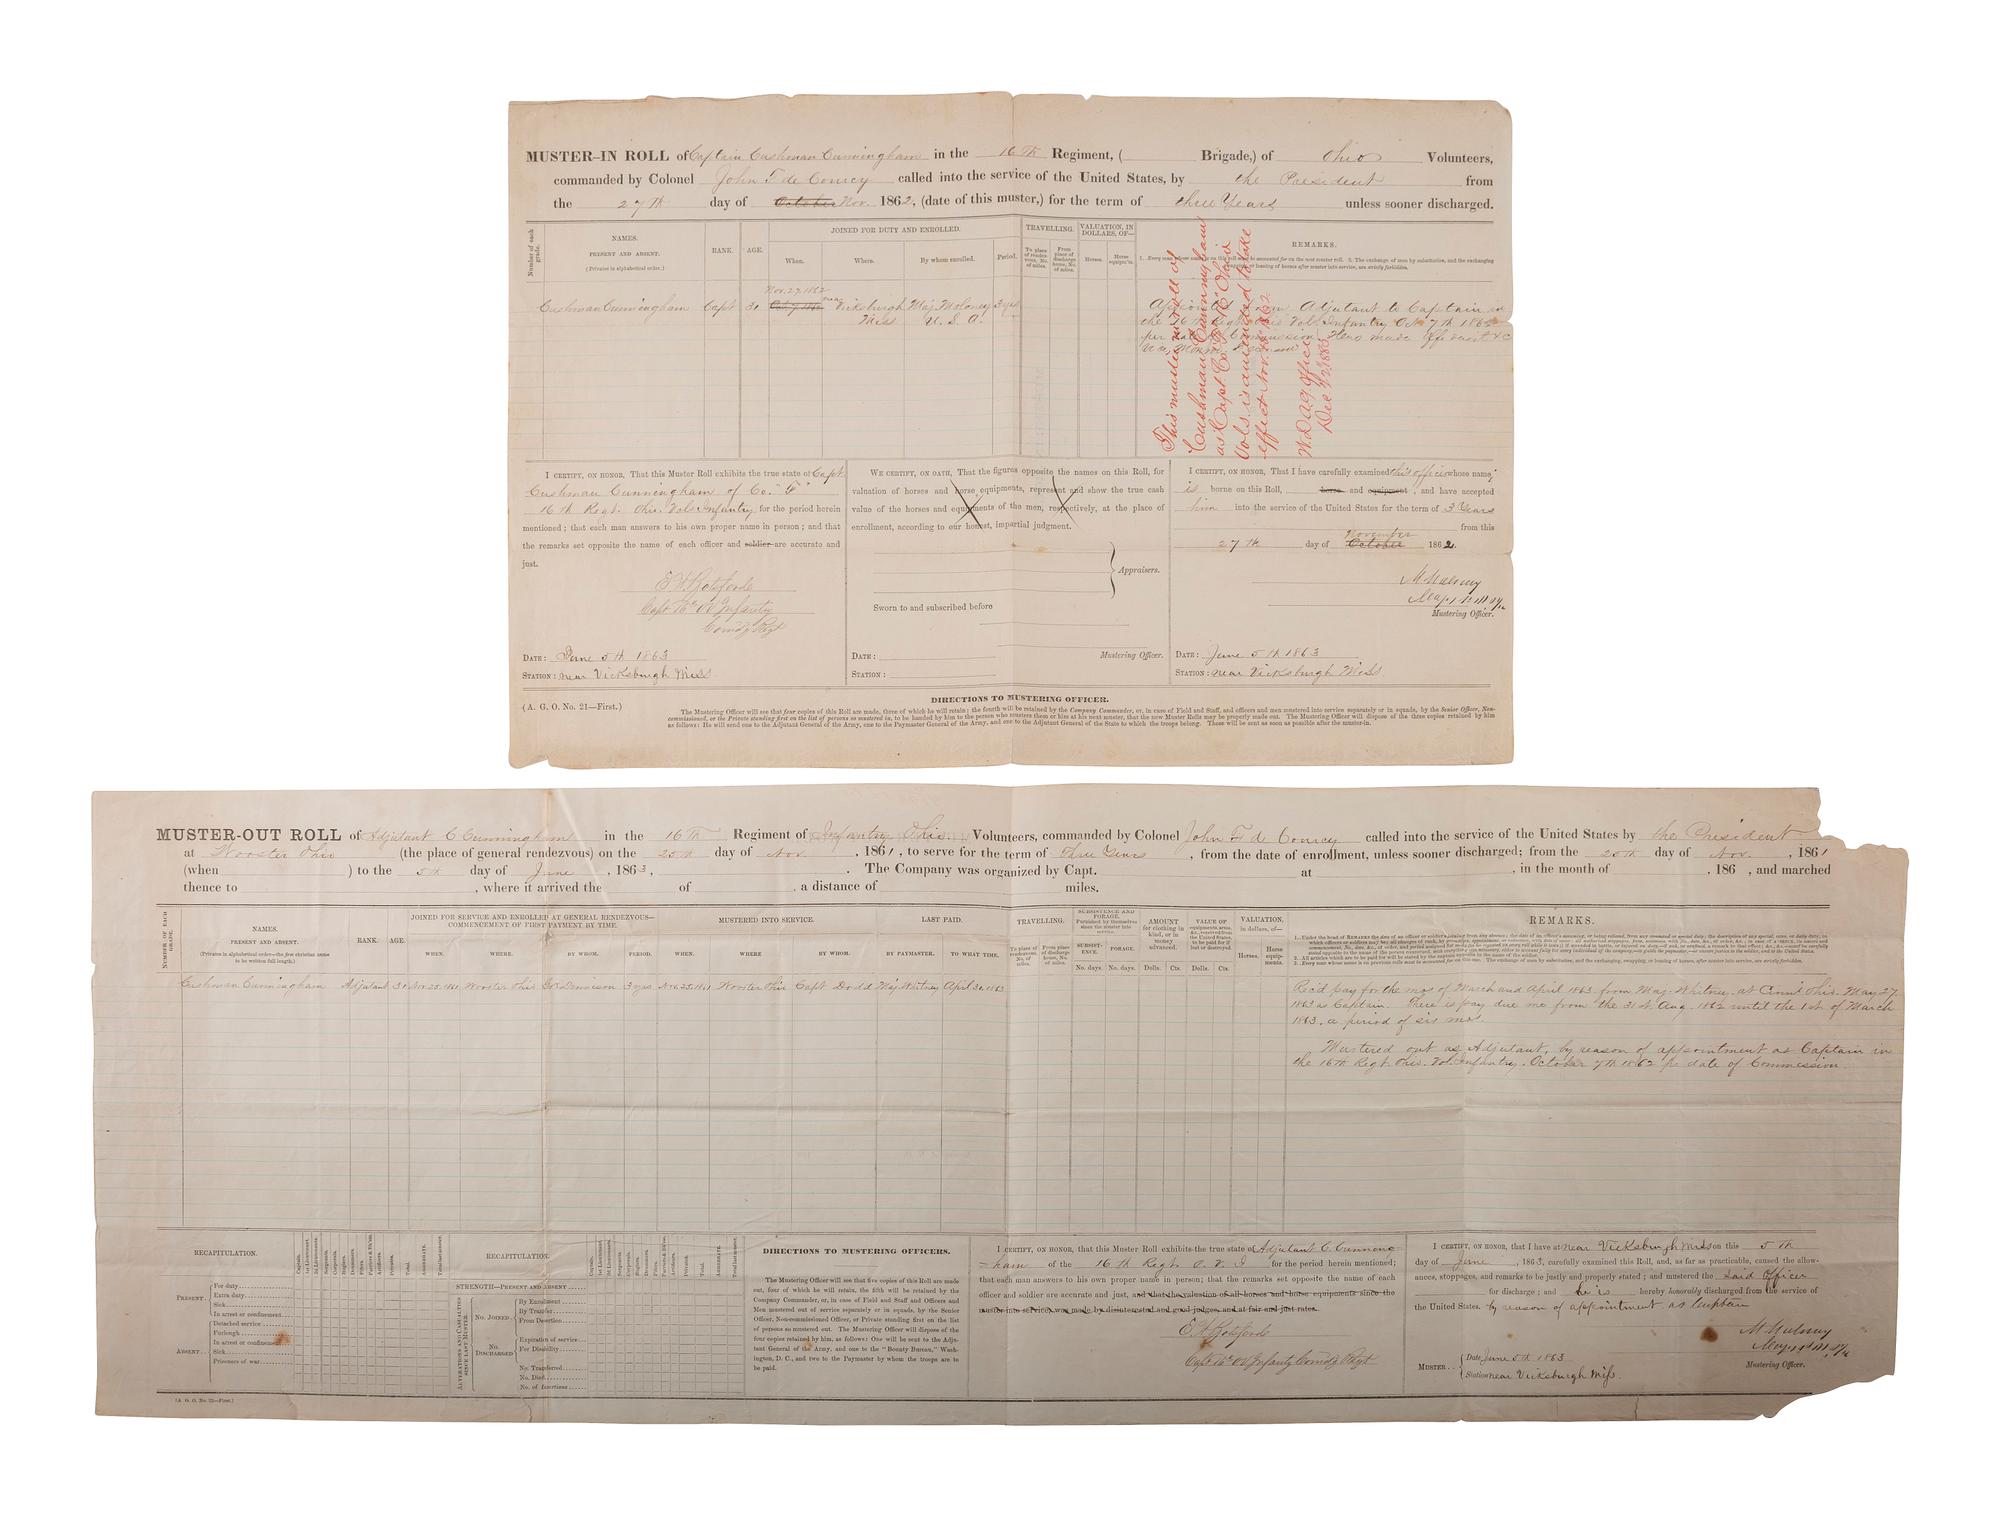 MUSTER-IN ROLL of Captain Cushman Cunningham in the 16th Regiment, ( Brigade,) of Ohio Volunteers,
commanded by Colonel John F de Courcy called into the service of the United States, by the President from
the 27th day of October Nov. 1862, (date of this muster,) for the term of three Years unless sooner discharged.
Number of each grade.
NAMES.
PRESENT AND ABSENT.
(Privates in alphabetical order.)
RANK.
AGE.
JOINED FOR DUTY AND ENROLLED.
When.
Where.
By whom enrolled.
Period.
TRAVELLING.
To place of rendezvous, No. of miles.
From place of discharge home, No. of miles.
VALUATION, IN DOLLARS, OF—
Horses.
Horse equipm'ts.
REMARKS.
1. Every man whose name is on this roll must be accounted for on the next muster roll. 2. The exchange of men by substitutes, and the exchanging
swapping, or loaning of horses after muster into service, are strictly forbidden.
Nov. 27 1862
Cushman Cunningham Capt 31 near Vicksburgh Maj Moloney 3 yrs
Miss U. S. A.
Adjutant to Captain in
the 16th Regt Ohio Vol. Infantry Oct 7th 1862
per Commission
This muster in roll of
Cushman Cunningham
as Capt Co. F 16" Ohio
Vols. is amended to take
effect Nov. 1862
W.D.A.G. Office
Dec
I CERTIFY, ON HONOR, That this Muster Roll exhibits the true state of Capt
Cushman Cunningham of Co. "F"
16th Regt. Ohio Vol. Infantry for the period herein
mentioned; that each man answers to his own proper name in person; and that
the remarks set opposite the name of each officer and soldier are accurate and
just.
E W Botsford
Capt 16th O V Infantry
Comdg Regt
DATE: June 5th 1863
STATION: near Vicksburgh Miss
WE CERTIFY, ON OATH, That the figures opposite the names on this Roll, for
valuation of horses and horse equipments, represent and show the true cash
value of the horses and equipments of the men, respectively, at the place of
enrollment, according to our honest, impartial judgment.
Appraisers.
Sworn to and subscribed before
DATE:
Mustering Officer.
STATION:
I CERTIFY, ON HONOR, That I have carefully examined this officer whose name
is borne on this Roll, horse and equipment, and have accepted
him into the service of the United States for the term of 3 Years
from this
27th day of October November 1862.
Mustering Officer.
DATE: June 5th 1863
STATION: near Vicksburgh Miss
DIRECTIONS TO MUSTERING OFFICER.
(A. G. O. No. 21—First.)
The Mustering Officer will see that four copies of this Roll are made, three of which he will retain; the fourth will be retained by the Company Commander, or, in case of Field and Staff, and officers and men mustered into service separately or in squads, by the Senior Officer, Non-
commissioned, or the Private standing first on the list of persons so mustered in, to be handed by him to the person who musters them on at his next muster, that the new Muster Rolls may be properly made out. The Mustering Officer will dispose of the three copies retained by him
as follows: He will send one to the Adjutant General of the Army, one to the Paymaster General of the Army, and one to the Adjutant General of the State to which the troops belong. These will be sent as soon as possible after the muster-in.
MUSTER-OUT ROLL of Adjutant C Cunningham in the 16th Regiment of Infantry Ohio Volunteers, commanded by Colonel John F de Courcy called into the service of the United States by the President
at Wooster Ohio (the place of general rendezvous) on the 25th day of Nov., 1861, to serve for the term of three Years, from the date of enrollment, unless sooner discharged; from the 25th day of Nov., 1861
(when ) to the 5th day of June, 1863, . The Company was organized by Capt. at , in the month of , 186 , and marched
thence to , where it arrived the of , a distance of miles.
NUMBER OF EACH GRADE.
NAMES.
PRESENT AND ABSENT.
(Privates in alphabetical order—the few christian name to be written full length.)
RANK.
AGE.
JOINED FOR SERVICE AND ENROLLED AT GENERAL RENDEZVOUS—
COMMENCEMENT OF FIRST PAYMENT BY TIME.
WHEN. WHERE. BY WHOM. PERIOD.
MUSTERED INTO SERVICE.
WHEN. WHERE BY WHOM.
LAST PAID.
BY PAYMASTER. TO WHAT TIME.
TRAVELLING.
To place of rendezvous, No. of miles.
From place of discharge home, No. of miles.
SUBSISTENCE AND FORAGE.
SUBSISTENCE. FORAGE.
No. days. No. days.
AMOUNT for clothing in kind, or in money advanced.
Dolls. Cts.
VALUE OF
Dolls. Cts.
VALUATION, in dollars, of—
Horses.
Horse equipments.
REMARKS.
Cushman Cunningham Adjutant 31 Nov. 25. 1861 Wooster Ohio Gov Dennison 3 yrs Nov. 25. 1861 Wooster Ohio Capt Dodd Maj. Whitney April 30. 1863
Rec'd pay for the mos of March and April 1863 from Maj. Whitney. at Cinn'ti Ohio. May 27
1863 as Captain. There is pay due me from the 31st Aug. 1862 until the 1st of March
1863. a period of six mos.
Mustered out as Adjutant, by reason of appointment as Captain in
the 16th Regt. Ohio. Vol. Infantry. October 7th 1862 pr date of Commission.
RECAPITULATION.
Captain.
1st Lieutenant.
2d Lieutenants.
Sergeants.
Corporals.
Buglers.
Drummers.
Fifers.
Farriers & Bl'ks.
Artificers.
Privates.
Total.
AGGREGATE.
Total last muster.
PRESENT.
For duty
Extra duty
Sick
In arrest or confinement
ABSENT.
Detached service
Furlough
In arrest or confinement
Sick
Prisoners of war
RECAPITULATION.
STRENGTH—PRESENT AND ABSENT
ALTERATIONS AND CASUALTIES SINCE LAST MUSTER
No. JOINED.
By Enrollment
By Transfer
From Desertion
No. DISCHARGED
Expiration of service
For Disability
No. Transferred
No. Died
No. of Desertions
DIRECTIONS TO MUSTERING OFFICERS.
The Mustering Officer will see that five copies of this Roll are made
out, four of which he will retain, the fifth will be retained by the
Company Commander, or, in case of Field and Staff and Officers and
Men mustered out of service separately or in squads, by the Senior
Officer, Non-commissioned Officer, or Private standing first on the list
of persons so mustered out. The Mustering Officer will dispose of the
four copies retained by him, as follows: One will be sent to the Adju-
tant General of the Army, one to the "Bounty Bureau," Wash-
ington, D. C., and two to the Paymaster by whom the troops are to
be paid.
I CERTIFY, ON HONOR, that this Muster Roll exhibits the true state of Adjutant C. Cunning
=ham of the 16th Regt O. V. I for the period herein mentioned;
that each man answers to his own proper name in person; that the remarks set opposite the name of each
officer and soldier are accurate and just, and that the valuation of all horses and horse equipments since the
muster into service, was made by disinterested and good judges, and at fair and just rates.
E W Botsford
Capt 16th O V Infantry Comdg Regt
I CERTIFY, ON HONOR, that I have at near Vicksburgh Miss on this 5th
day of June, 1863, carefully examined this Roll, and, as far as practicable, caused the allow-
ances, stoppages, and remarks to be justly and properly stated; and mustered the said Officer
for discharge; and he is hereby honorably discharged from the service of
the United States. by reason of appointment as Captain
Mustering Officer.
MUSTER
Date June 5th 1863
Station near Vicksburgh Miss.
(A. G. O. No. 22—First.)